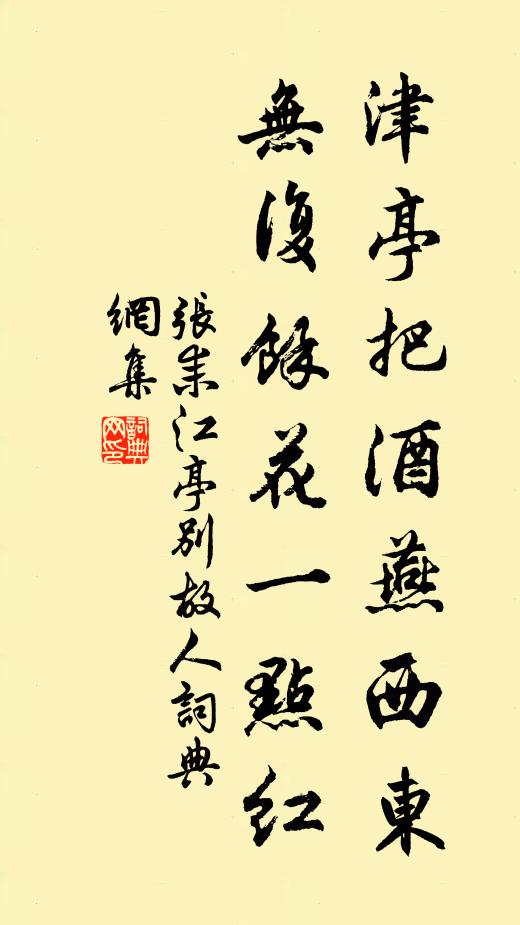 津亭把酒燕西東
無復餘花一點紅
張耒江亭別故人詞典
網集
詞典
网印